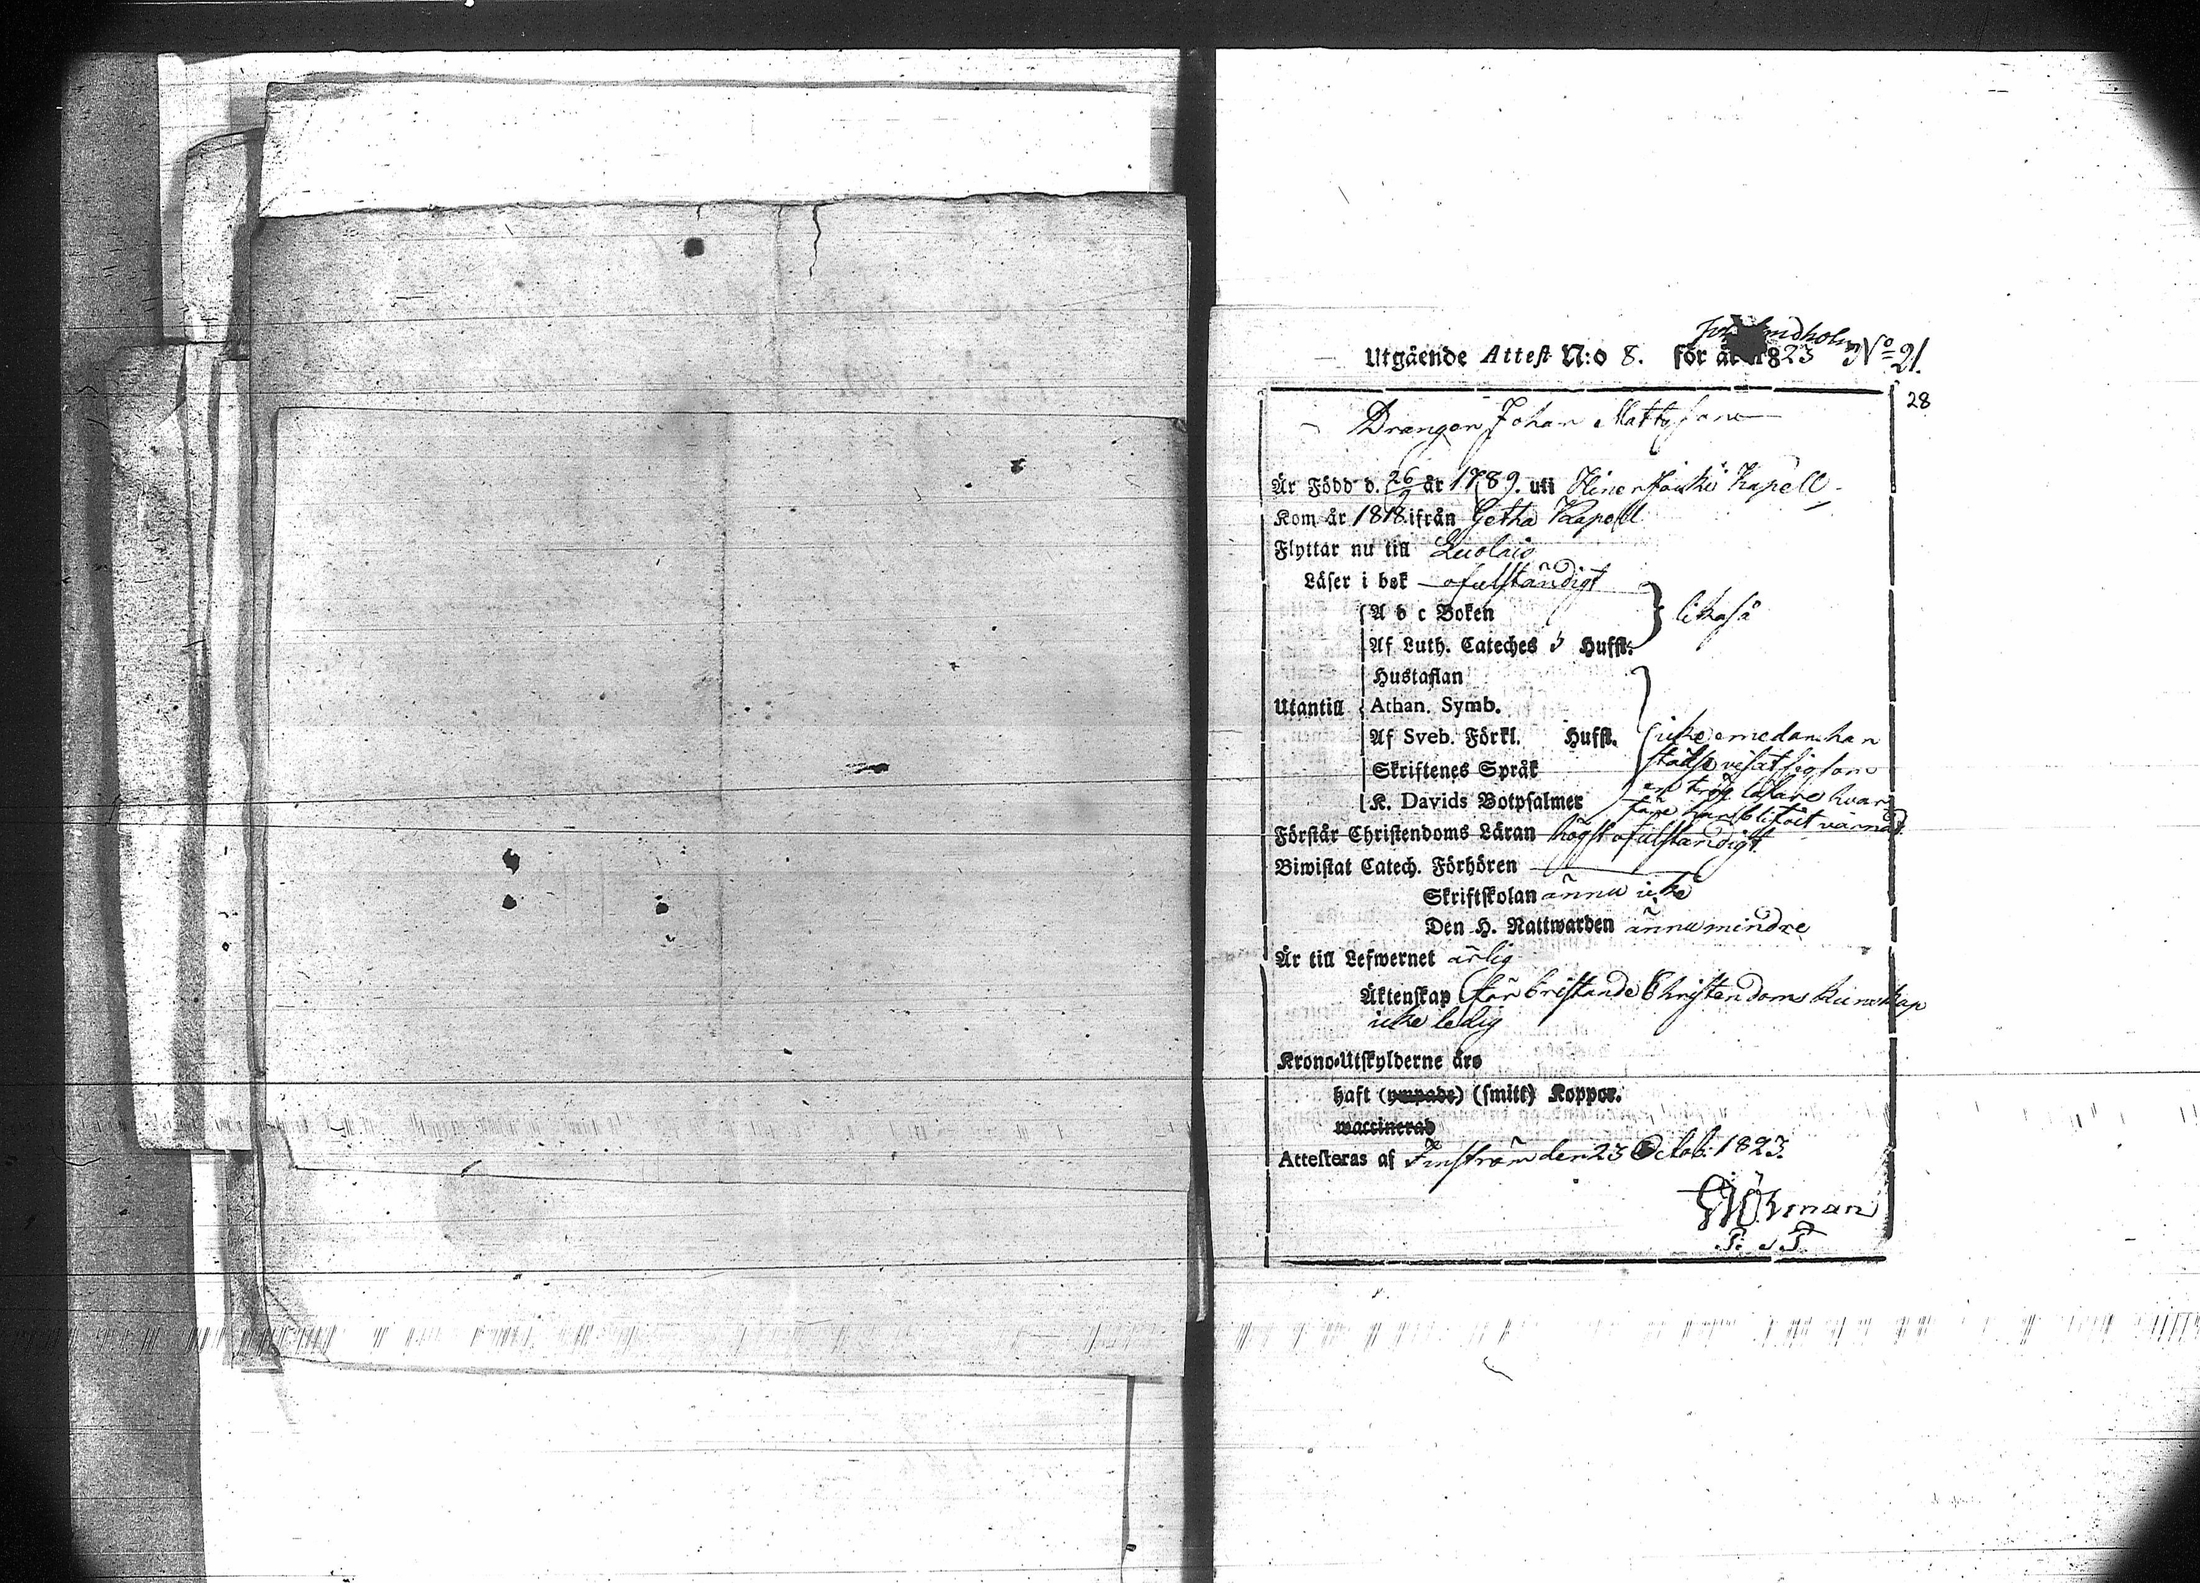 Utgående Attest N:o 8. för år 1823 No 21.
28
Drängen Johan Mattsson
Är Född d. 26/9 år 1789. uti Kapell
Kom år 1818 ifrån Getha Kapell
Flyttar nu till
Läser i bok ofulständigt
A b c Boken
likaså
Af Luth. Cateches 5 Hufst.
Hustaflan
Utantill Athan. Symb.
Af Sveb. Förkl. Hufst. icke emedan han
Skriftenes Språk städse visat sig som
K. Davids Botpsalmer en trög läsare hvar
före han blifvit
Förstår Christendoms Läran högst ofulständigt
Biwistat Catech. Förhören
Skriftskolan ännu icke
Den H. Nattwarden ännu mindre
Är till Lefwernet ärlig
Äktenskap för bristande Christendoms kunskap
icke ledig
Krono-Utskylderne äro
haft (ympade) (smitt) Koppor.
waccinerad
Attesteras af Finström den 23 Octob. 1823.
Öhman